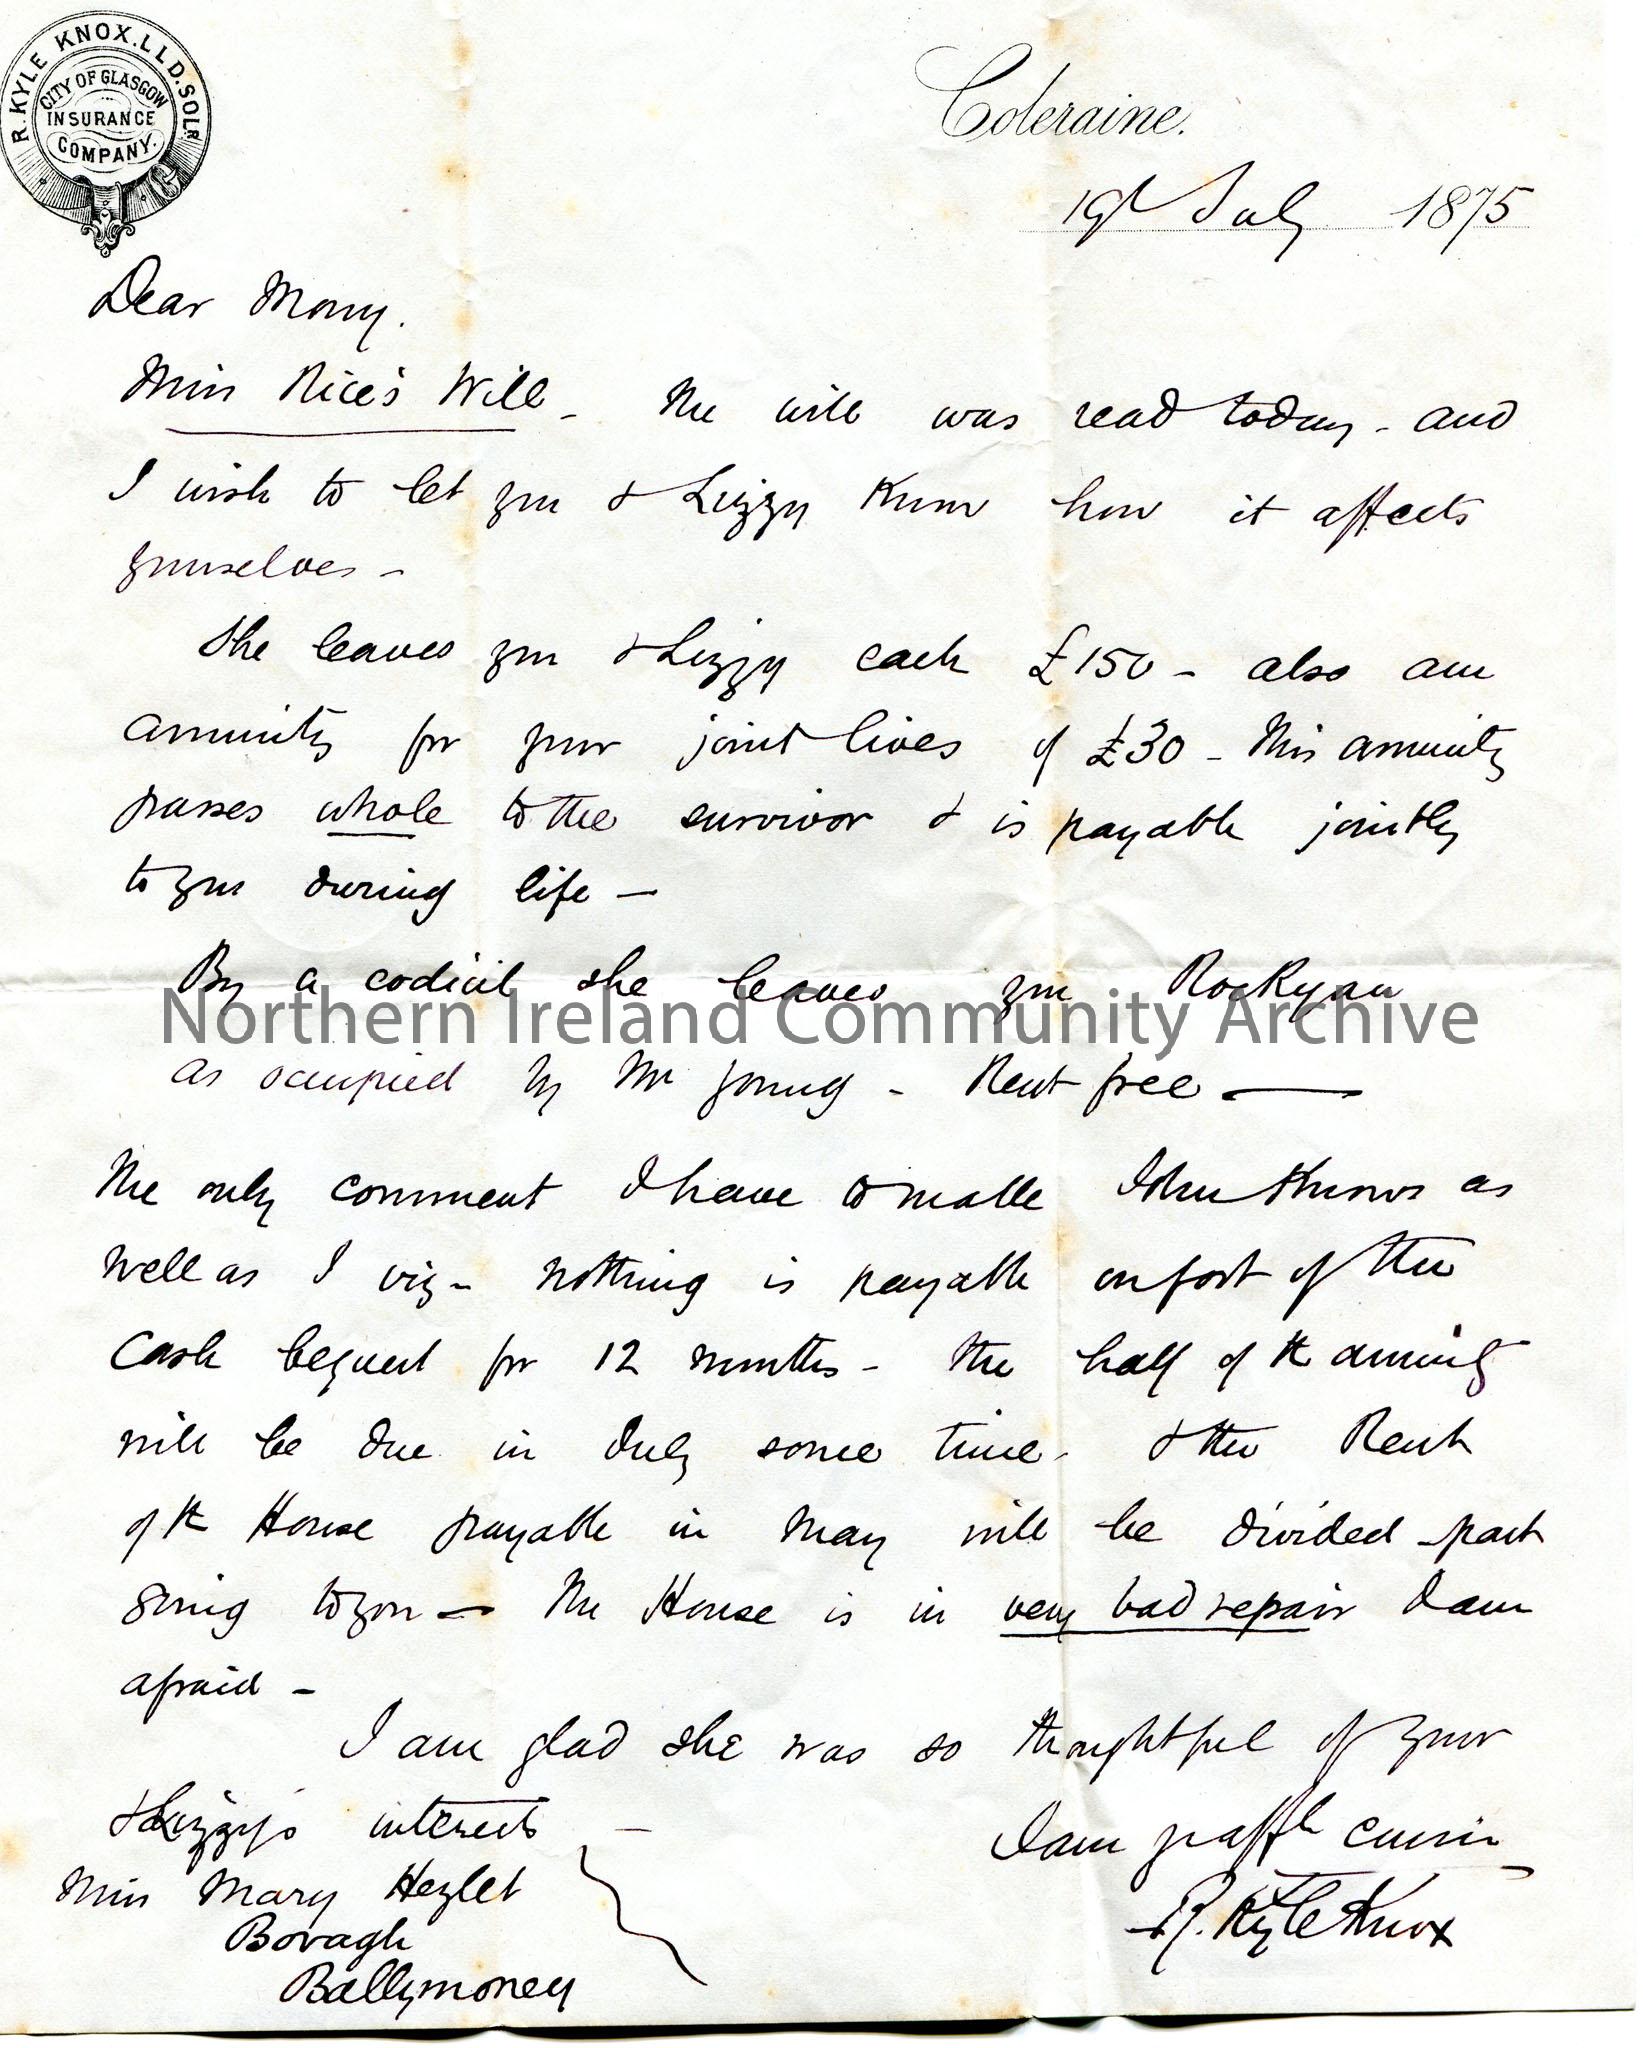 R. KYLE KNOX. LLD. SOLR
CITY OF GLASGOW
INSURANCE
COMPANY.
Coleraine.
19th July 1875
Dear Mary.
Miss Rice's Will - The will was read today - and
I wish to let you & Lizzy know how it affects
yourselves -
She leaves you & Lizzy each £150 - also an
annuity for your joint lives of £30 - This annuity
passes whole to the survivor & is payable jointly
to you during life -
By a codicil she leaves you
Northern Ireland Community Archive
as occupied by Mr Young - Rent free -
The only comment I have to make John knows as
well as I viz - nothing is payable on foot of the
Cash bequest for 12 months - the half of the annuity
will be due in July some time - & the Rent
of the House payable in May will be divided - part
going to you - The House is in very bad repair I am
afraid -
I am glad she was so thoughtful of your
& Lizzy's interests -
I am yr afft cousin
R. Kyle Knox
Miss Mary Hezlet
Bovagh
Ballymoney